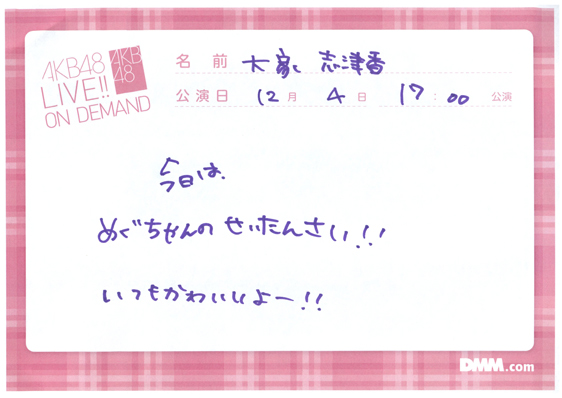 AKB48
LIVE!!
ON DEMAND
AKB
48
名前 大家 志津香
公演日 12月 4日 17:00 公演
今日は、
めぐちゃんの せいたんさい!!
いつもかわいいよー!!
DMM.com